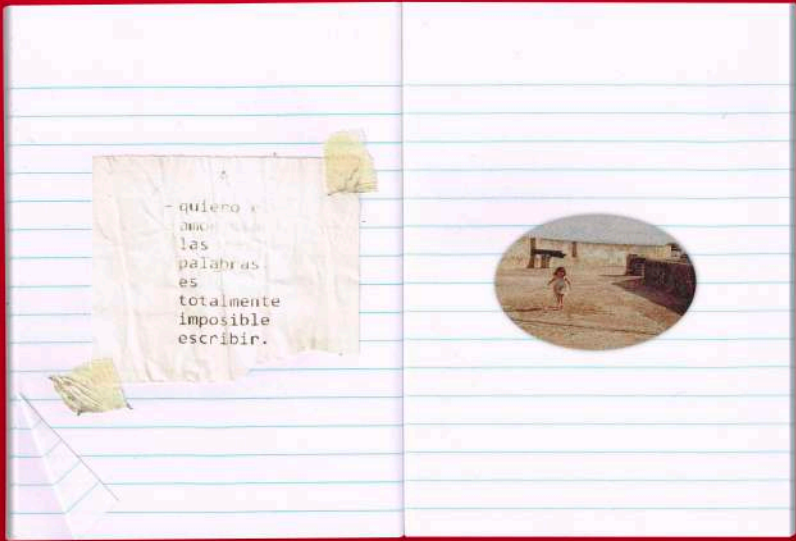 - quiero
amor
las
palabras
es
totalmente
imposible
escribir.